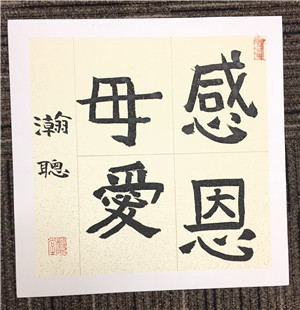 感恩
母愛
瀚聰